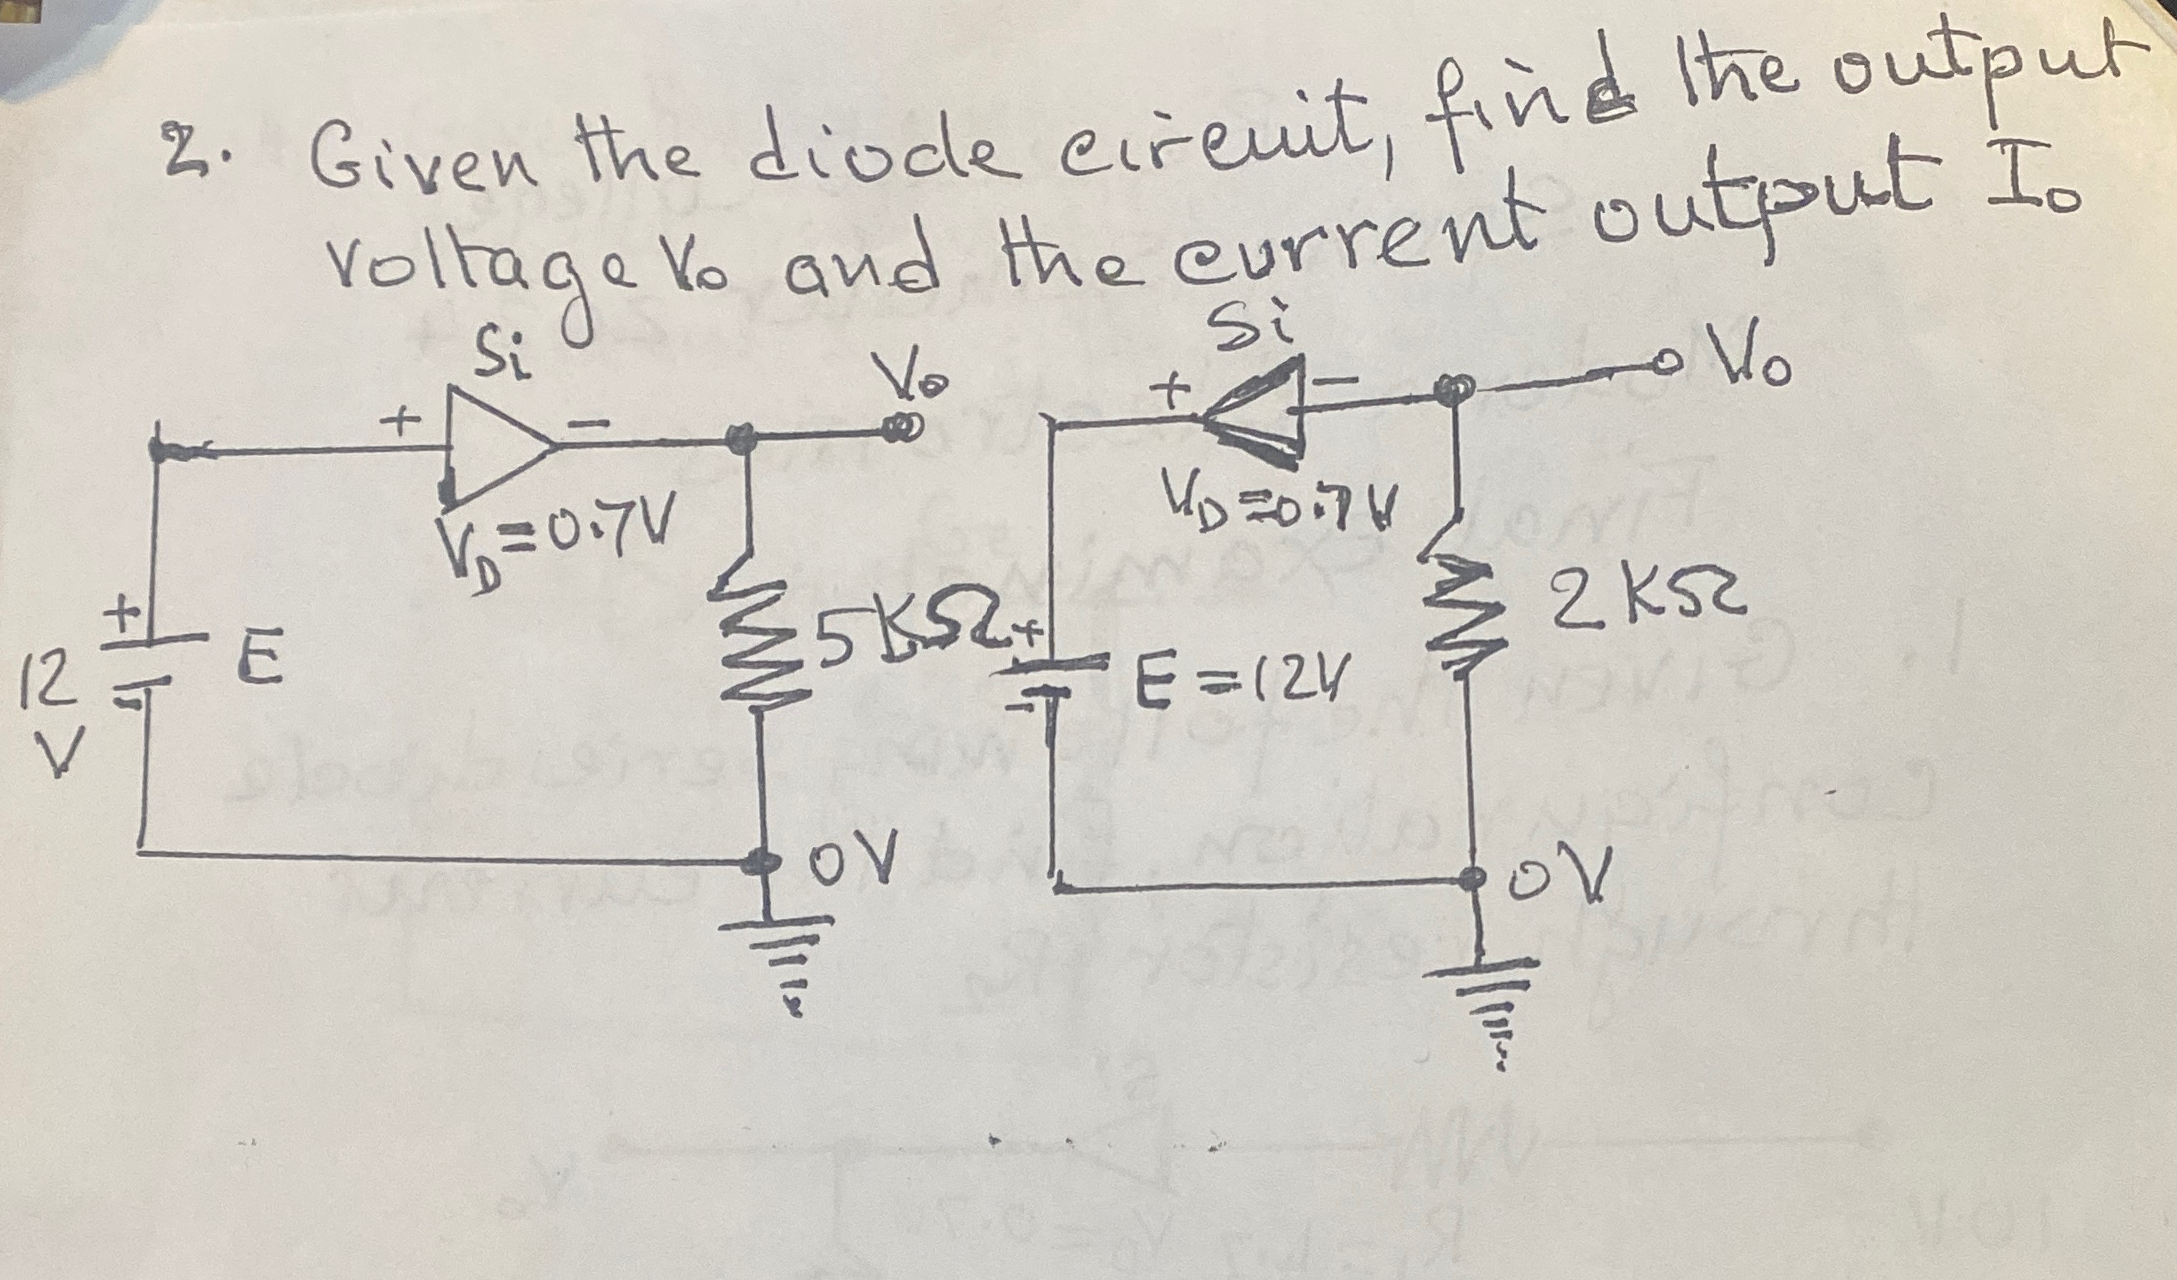 2. Given the diode circuit, find the output
voltage Vo and the current output Io
Si
+
-
Vo
VD=0.7V
+
12
V
-
E
5KΩ
0V
Si
+
-
Vo
VD=0.7V
+
-
E=12V
2KΩ
0V